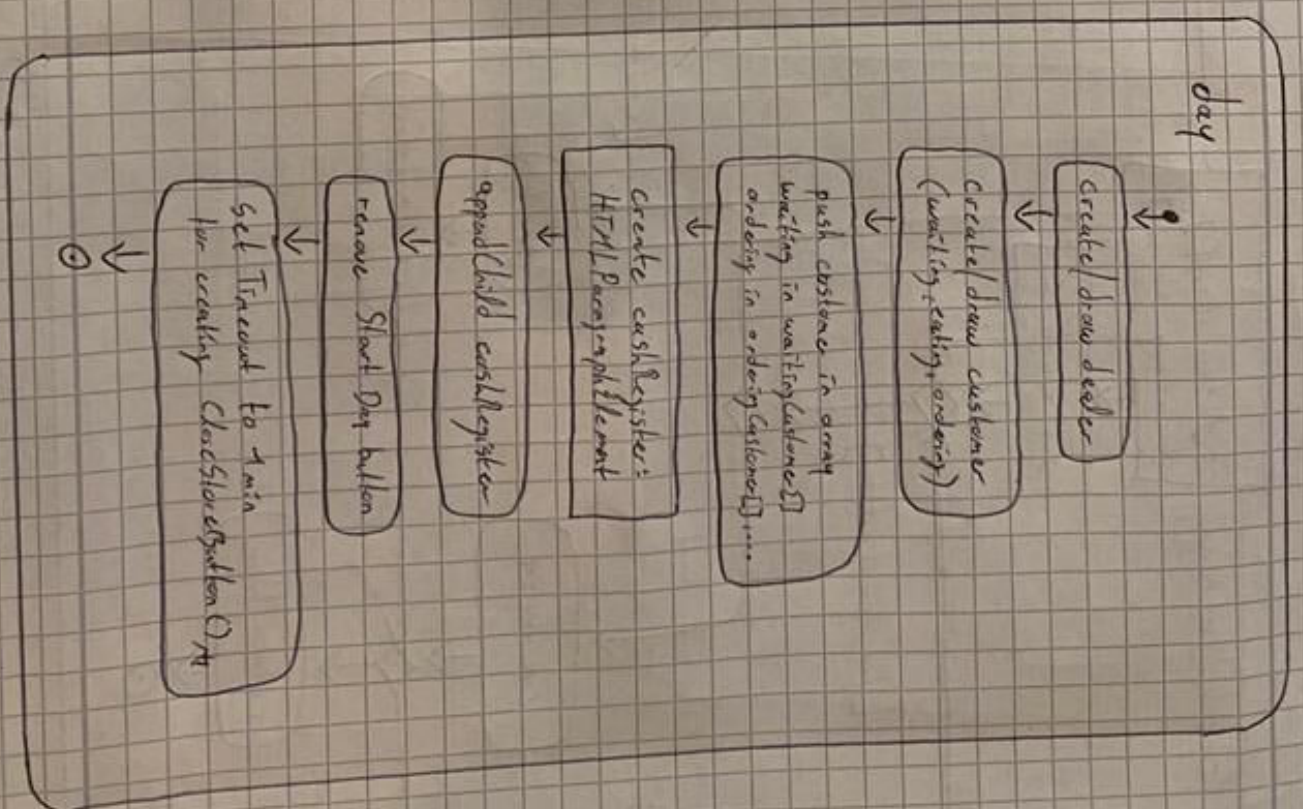 day
create/draw dealer
create/draw customer
(waiting, eating, ordering))
push customer in array
waiting in waitingCustomer[]
ordering in orderingCustomer[]....
create cashRegister:
HTMLParagraphElement
appendChild cashRegister
remove Start Day button
Set Timeout to 1 min
for creating CloseStoreButton()